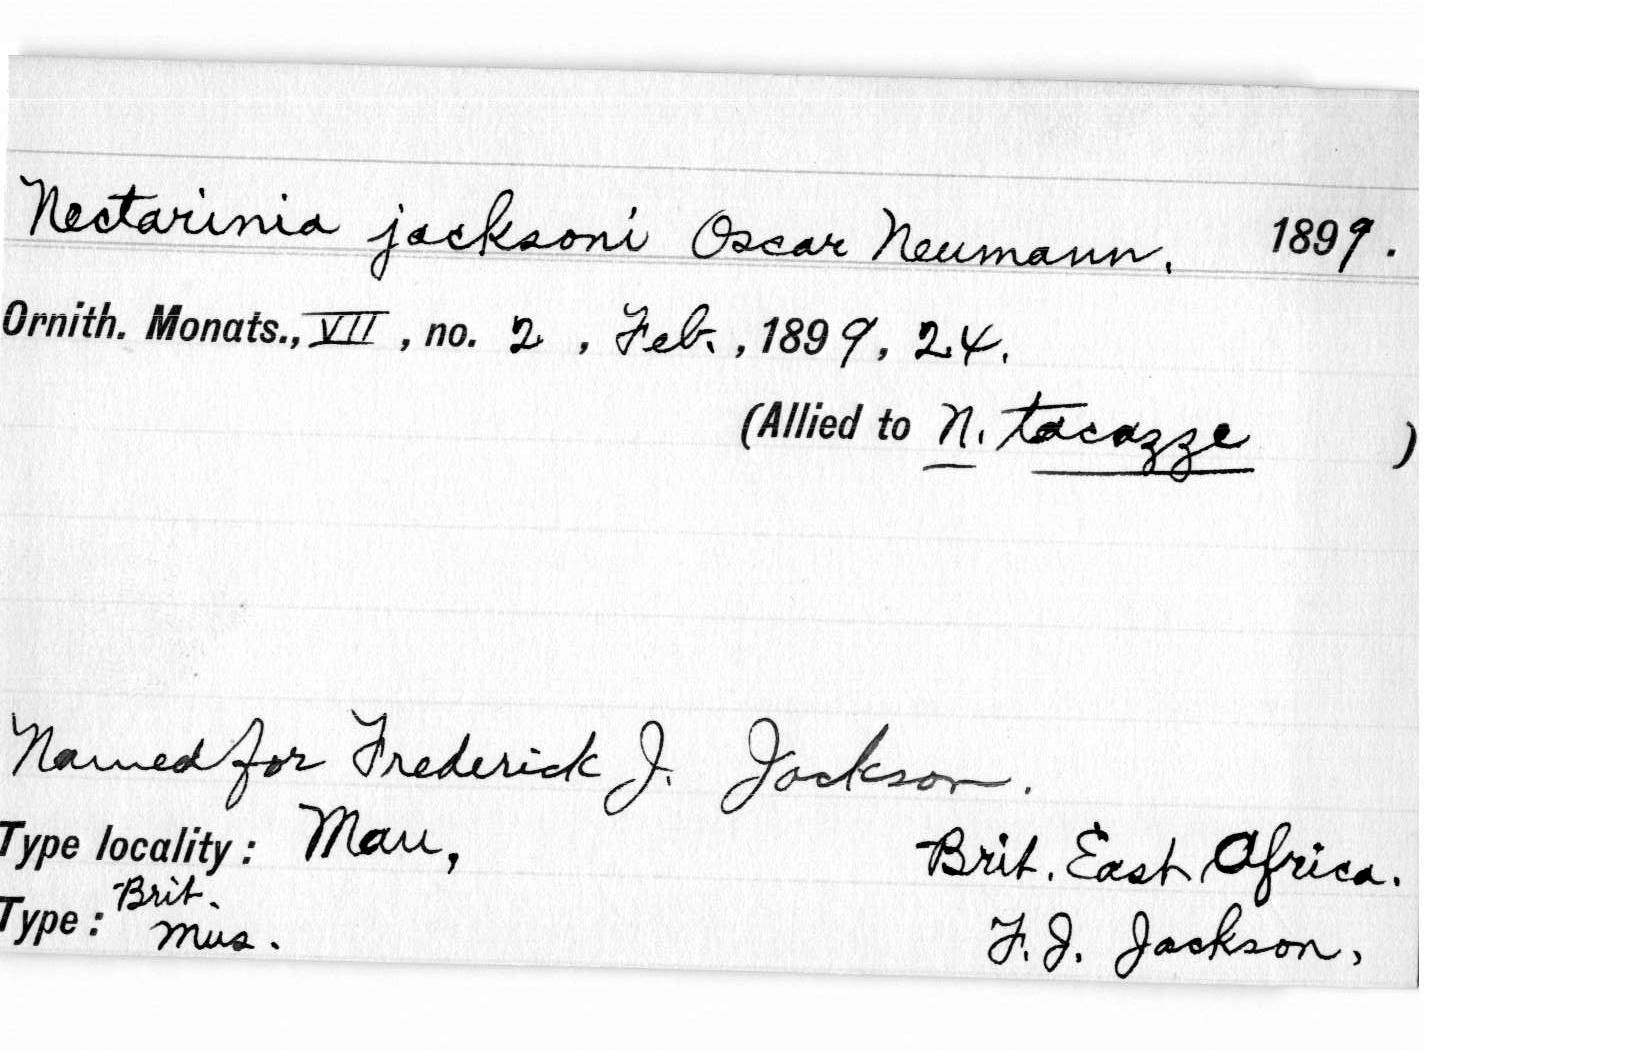 Nectarinia jacksoni Oscar Neumann, 1899.
Ornith. Monats., VII, no. 2, Feb., 1899, 24.
(Allied to N. tacazze )
Named for Frederick J. Jackson.
Type locality: Mau, Brit. East Africa.
Type: Brit. Mus. F. J. Jackson,